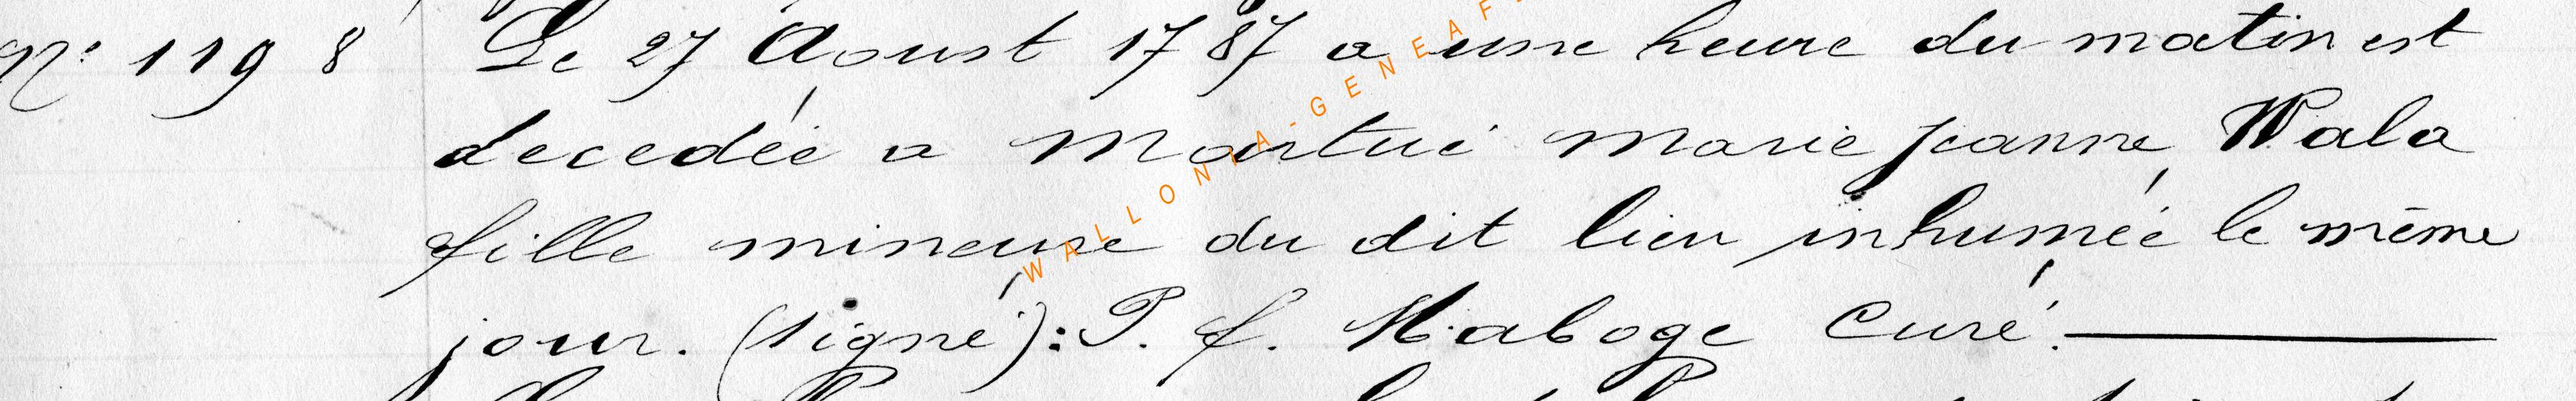 N° 1198 Le 27 Aoust 1787 a une heure du matin est
decedée a Martué Marie Jeanne Wala
fille mineure du dit lieu inhumée le même
jour. (signé): P. f. Maboge Curé.
WALLONIA-GENEAF